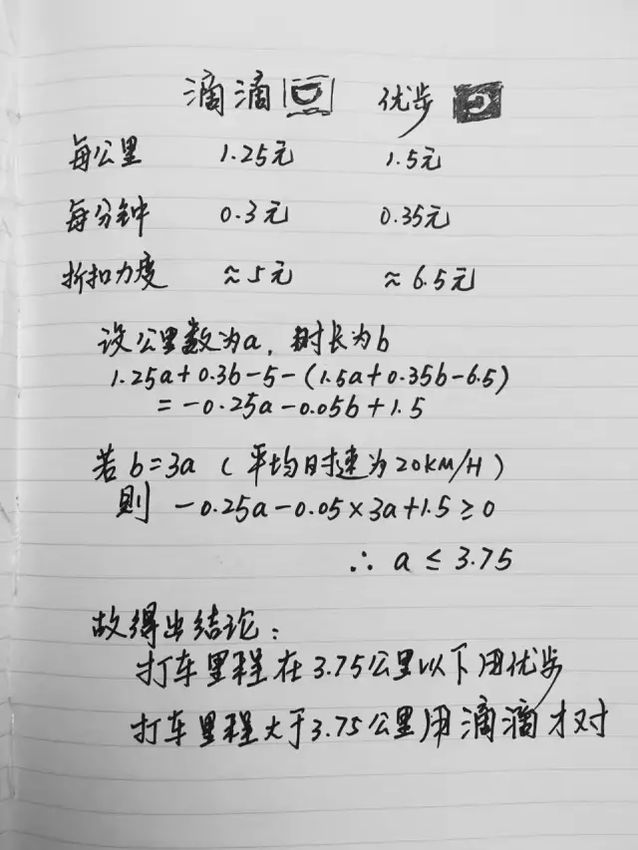 滴滴 优步
每公里 1.25元 1.5元
每分钟 0.3元 0.35元
折扣力度 ≈5元 ≈6.5元
设公里数为a，时长为b
1.25a+0.3b-5-(1.5a+0.35b-6.5)
=-0.25a-0.05b+1.5
若b=3a（平均时速为20KM/H）
则 -0.25a-0.05×3a+1.5≥0
∴ a≤3.75
故得出结论：
打车里程在3.75公里以下用优步
打车里程大于3.75公里用滴滴才对